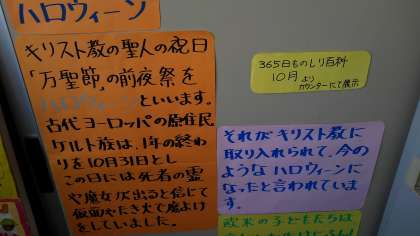 ハロウィーン
キリスト教の聖人の祝日
「万聖節」の前夜祭を
ハロウィーンといいます。
古代ヨーロッパの原住民
ケルト族は、1年の終わ
りを10月31日とし
この日には死者の霊
や魔女が出ると信じて
仮面やたき火で魔よけ
をしていました。
365日ものしり百科
10月より
カウンターにて展示
それがキリスト教に
取り入れられて、今の
ようなハロウィーンに
なったと言われていま
す。
欧米の子どもたちは